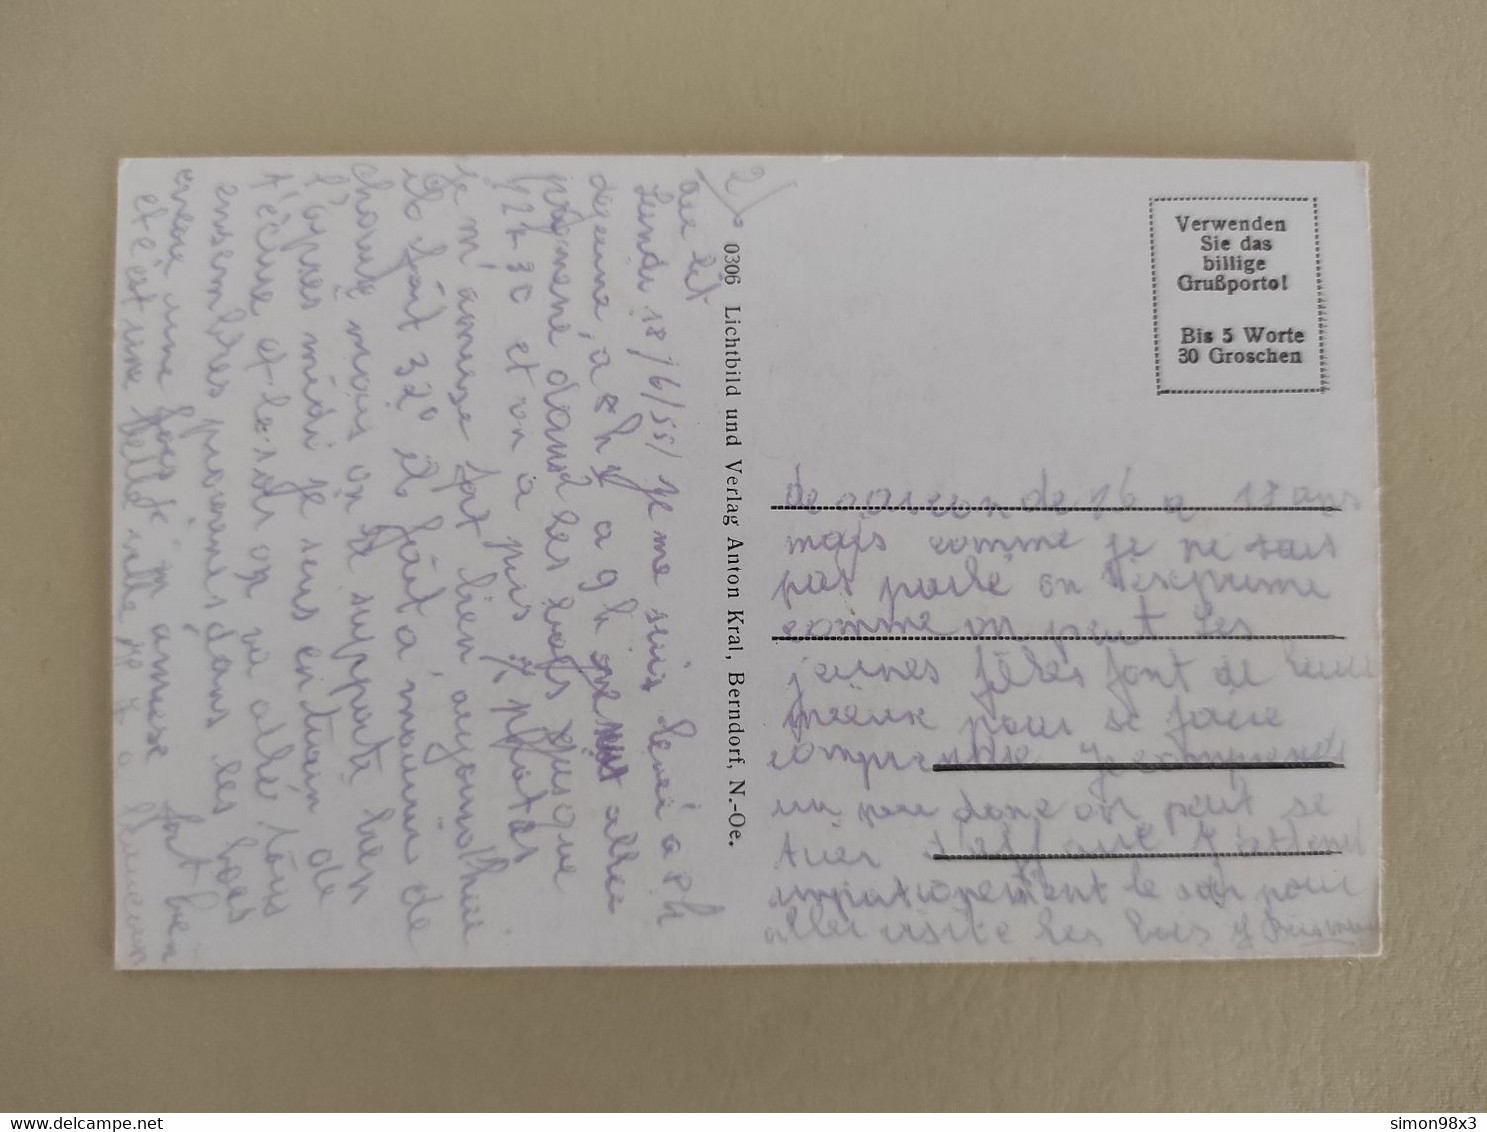 2/
au lit
Lundi 18/6/55/ je me suis levé a 8h
dejeuné, a 8 h a 9h allez
promene dans les bois jusque
12h30 et on a pris photos
je m'amuse fort bien aujourd'hui
il fait 32° il fait a mourir de
chaud mais on le supporte bien
l'apres midi je suis en train de
t'écrire et le soir on va allé tous
ensembles promenés dans les bois
encore une fois je m amuse fort bien
et c'est une belle ville
de garcon de 16 a 17 ans
mais comme je ne sais
pas parlé on s'exprime
comme on peut les
jeunes font de leur
mieux pour se faire
comprendre je comprends
un peu donc on peut se
tirer d'affaire j'attend
impatiemment le soir pour
aller visité les bois
0306 Lichtbild und Verlag Anton Kral, Berndorf, N.-Oe.
Verwenden
Sie das
billige
Grußporto!
Bis 5 Worte
30 Groschen
simon98x3